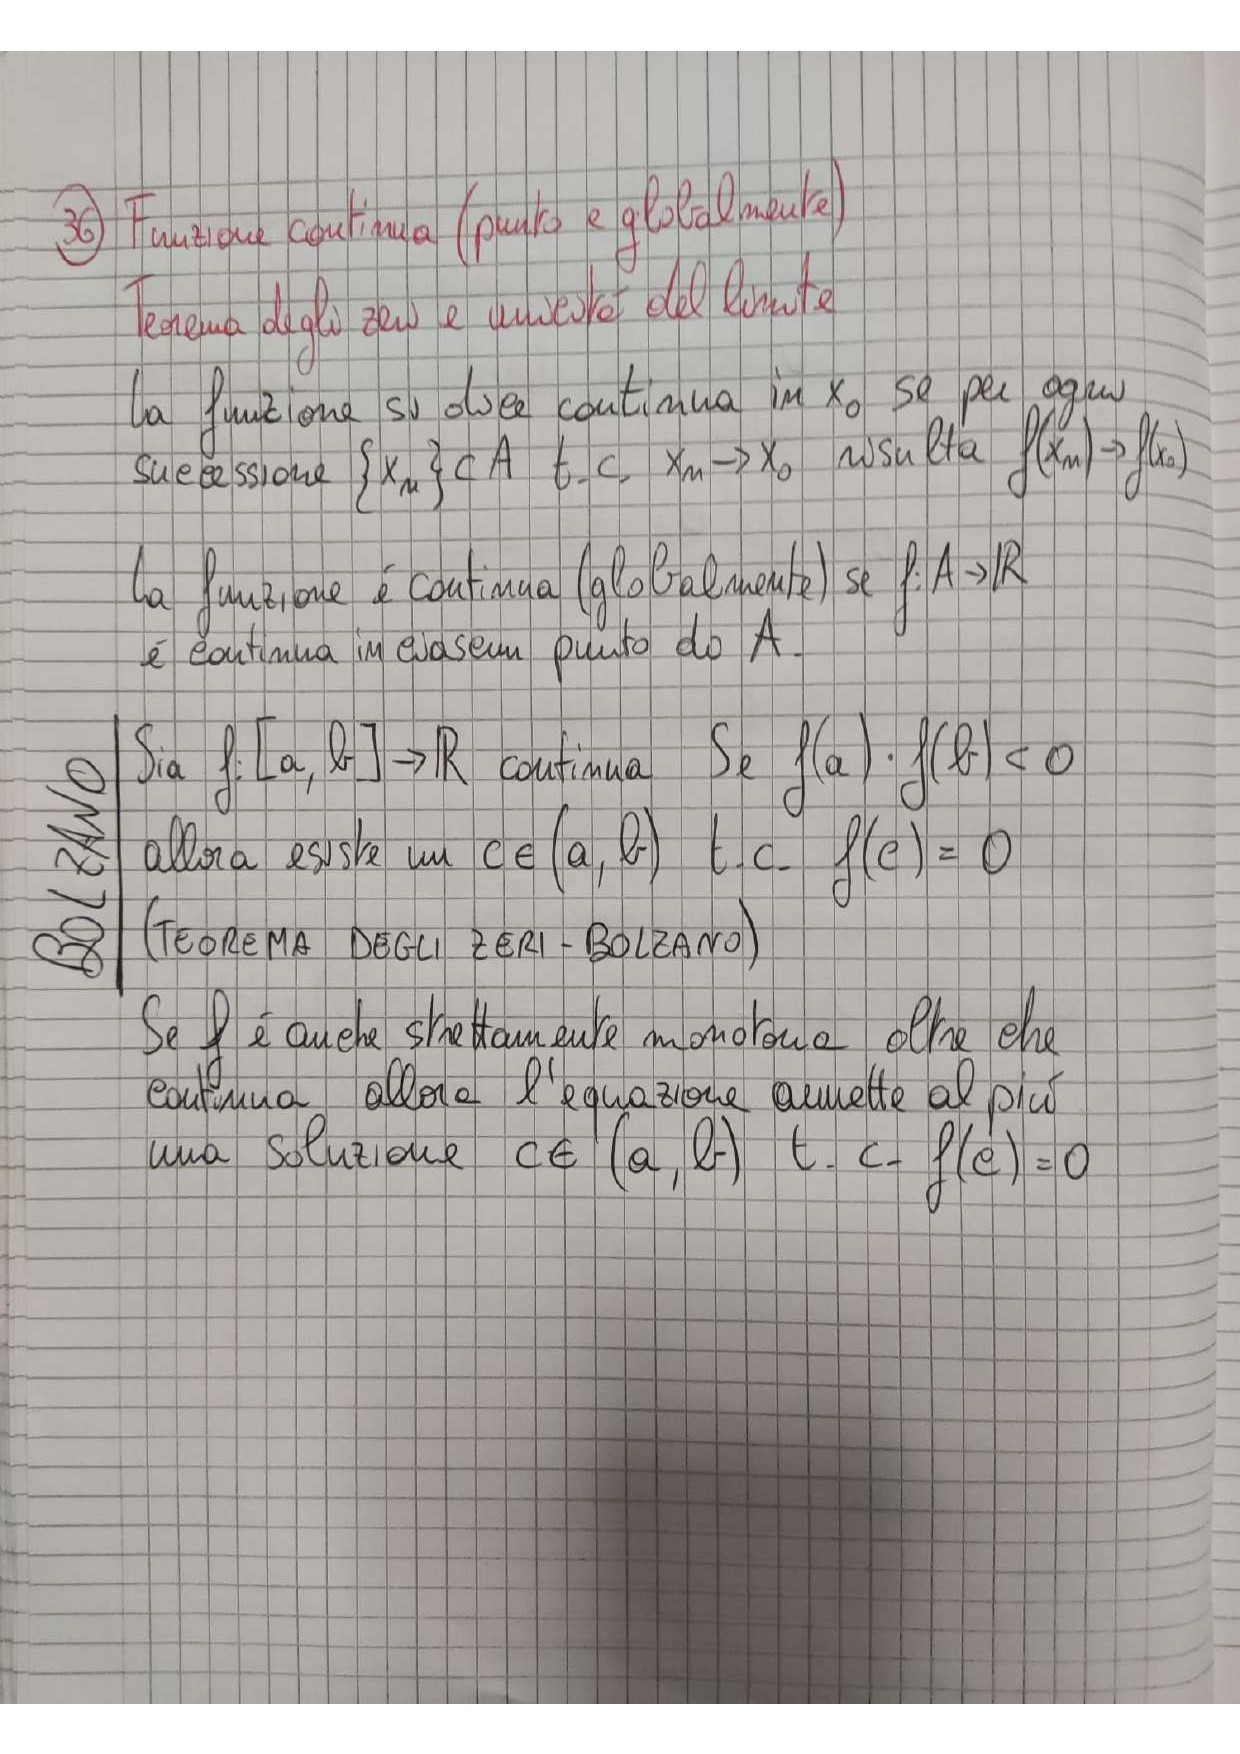 36) Funzione continua (punto e globalmente)
Teorema degli zeri e unicità del limite
La funzione si dice continua in x₀ se per ogni
successione {xₙ} ⊂ A t.c. xₙ → x₀ risulta f(xₙ) → f(x₀)
La funzione é continua (globalmente) se f: A → ℝ
é continua in ciascun punto di A.
BOLZANO
Sia f: [a, b] → ℝ continua Se f(a) · f(b) < 0
allora esiste un c ∈ (a, b) t.c. f(c) = 0
(TEOREMA DEGLI ZERI - BOLZANO)
Se f é anche strettamente monotona oltre che
continua allora l'equazione ammette al piú
una soluzione c ∈ (a, b) t.c. f(c) = 0